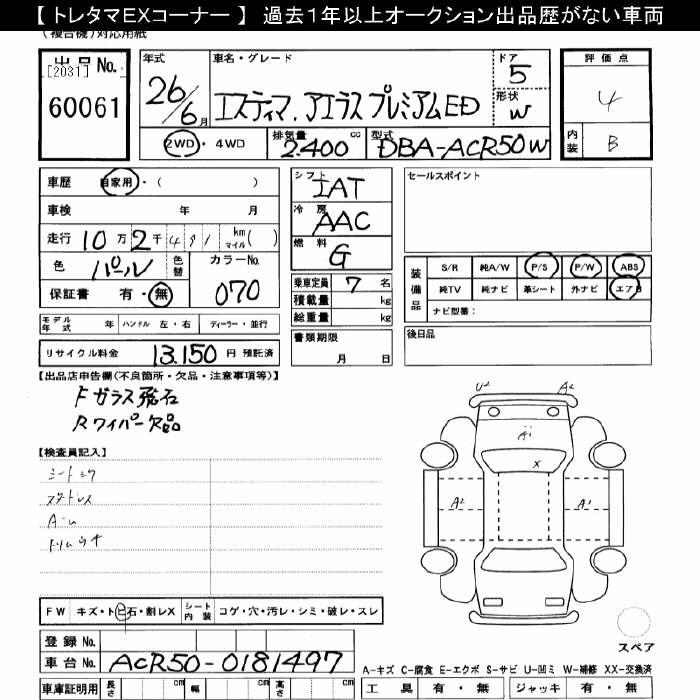 【 トレタマEXコーナー 】 過去1年以上オークション出品歴がない車両
(複合機)対応用紙
出品 No.
[2031]
60061
年式 26/6月
車名・グレード エスティマ.アエラス プレミアムED
ドア 5
形状 W
2WD・4WD
排気量 2.400 cc
型式 DBA-ACR50W
評価点 4
内装 B
車歴 自家用・( )
車検 年 月
走行 10万2千471 km マイル( )
色 パール 色替
カラーNo. 070
保証書 有・無
シフト IAT
冷房 AAC
燃料 G
乗車定員 7 名
積載量 kg
総重量 kg
セールスポイント
装備品
S/R 純A/W P/S P/W ABS
純TV 純ナビ 革シート 外ナビ エアB
ナビ型番:
モデル年式 年 ハンドル 左・右 ディーラー・並行
書類期限 月 日
後日品
リサイクル料金 13.150 円 預託済
【出品店申告欄(不良箇所・欠品・注意事項等)】
Fガラス飛石
Rワイパー欠品
【検査員記入】
シートミワ
U2 A2
A1
X
A2 A1
FW キズ・トビ石・割レX シート内装 コゲ・穴・汚レ・シミ・破レ・スレ
登録 No.
車台 No. ACR50-0181497
車庫証明用 長さ cm 幅 cm 高さ cm
スペア
A-キズ C-腐食 E-エクボ S-サビ U-凹ミ W-補修 XX-交換済
工具 有・無 ジャッキ 有・無